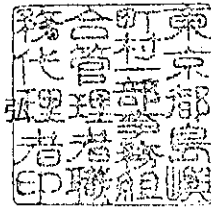 東京都島嶼
町村一部事務組
合管理者職
務代理者印
弘